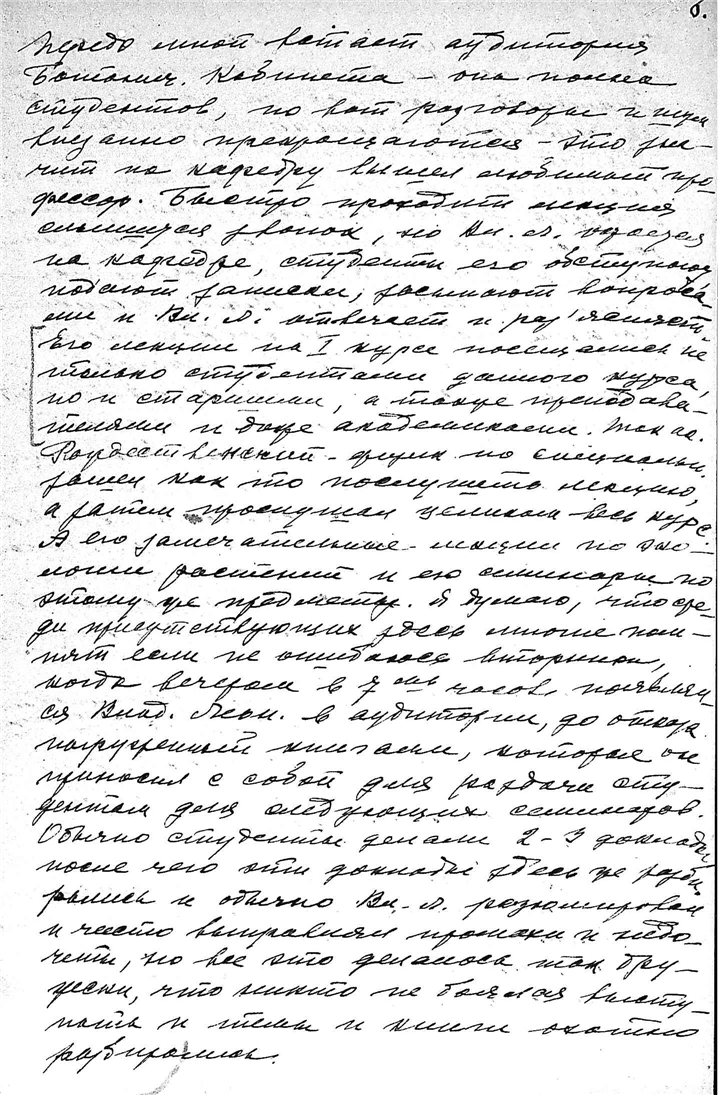 6.
Предо мной встает аудитория
Ботанич. Кабинета – она полна
студентов, но вот разговоры и шум
внезапно прекращаются – это зна-
чит на кафедру вышел любимый про-
фессор. Быстро проходит лекция
слышится звонок, но Вл. Л. остается
на кафедре, студенты его обступают
подают записки, засыпают вопроса-
ми и Вл. Л. отвечает и раз'ясняет.
Его лекции на I курсе посещались не
только студентами данного курса,
но и старшими, а также преподава-
телями и даже академиками. Так ак.
Рождественский – физик по специальн.
зашел как то послушать лекцию,
а затем прослушал целиком весь курс.
А его замечательные лекции по эко-
логии растений и его семинары по
этому же предмету. Я думаю, что сре-
ди присутствующих здесь многие пом-
нят если не ошибаюсь вторники,
когда вечером в 7 час. появлял-
ся Влад. Леон. в аудитории, до отказа
нагруженный книгами, которые он
приносил с собой для раздачи сту-
дентам для следующих семинаров.
Обычно студенты делали 2-3 доклада,
после чего эти доклады здесь же разби-
рались и обычно Вл. Л. резюмировал
и часто выправлял промахи и недо-
четы, но все это делалось так дру-
жески, что никто не боялся высту-
пать и темы и книги охотно
разбирались.